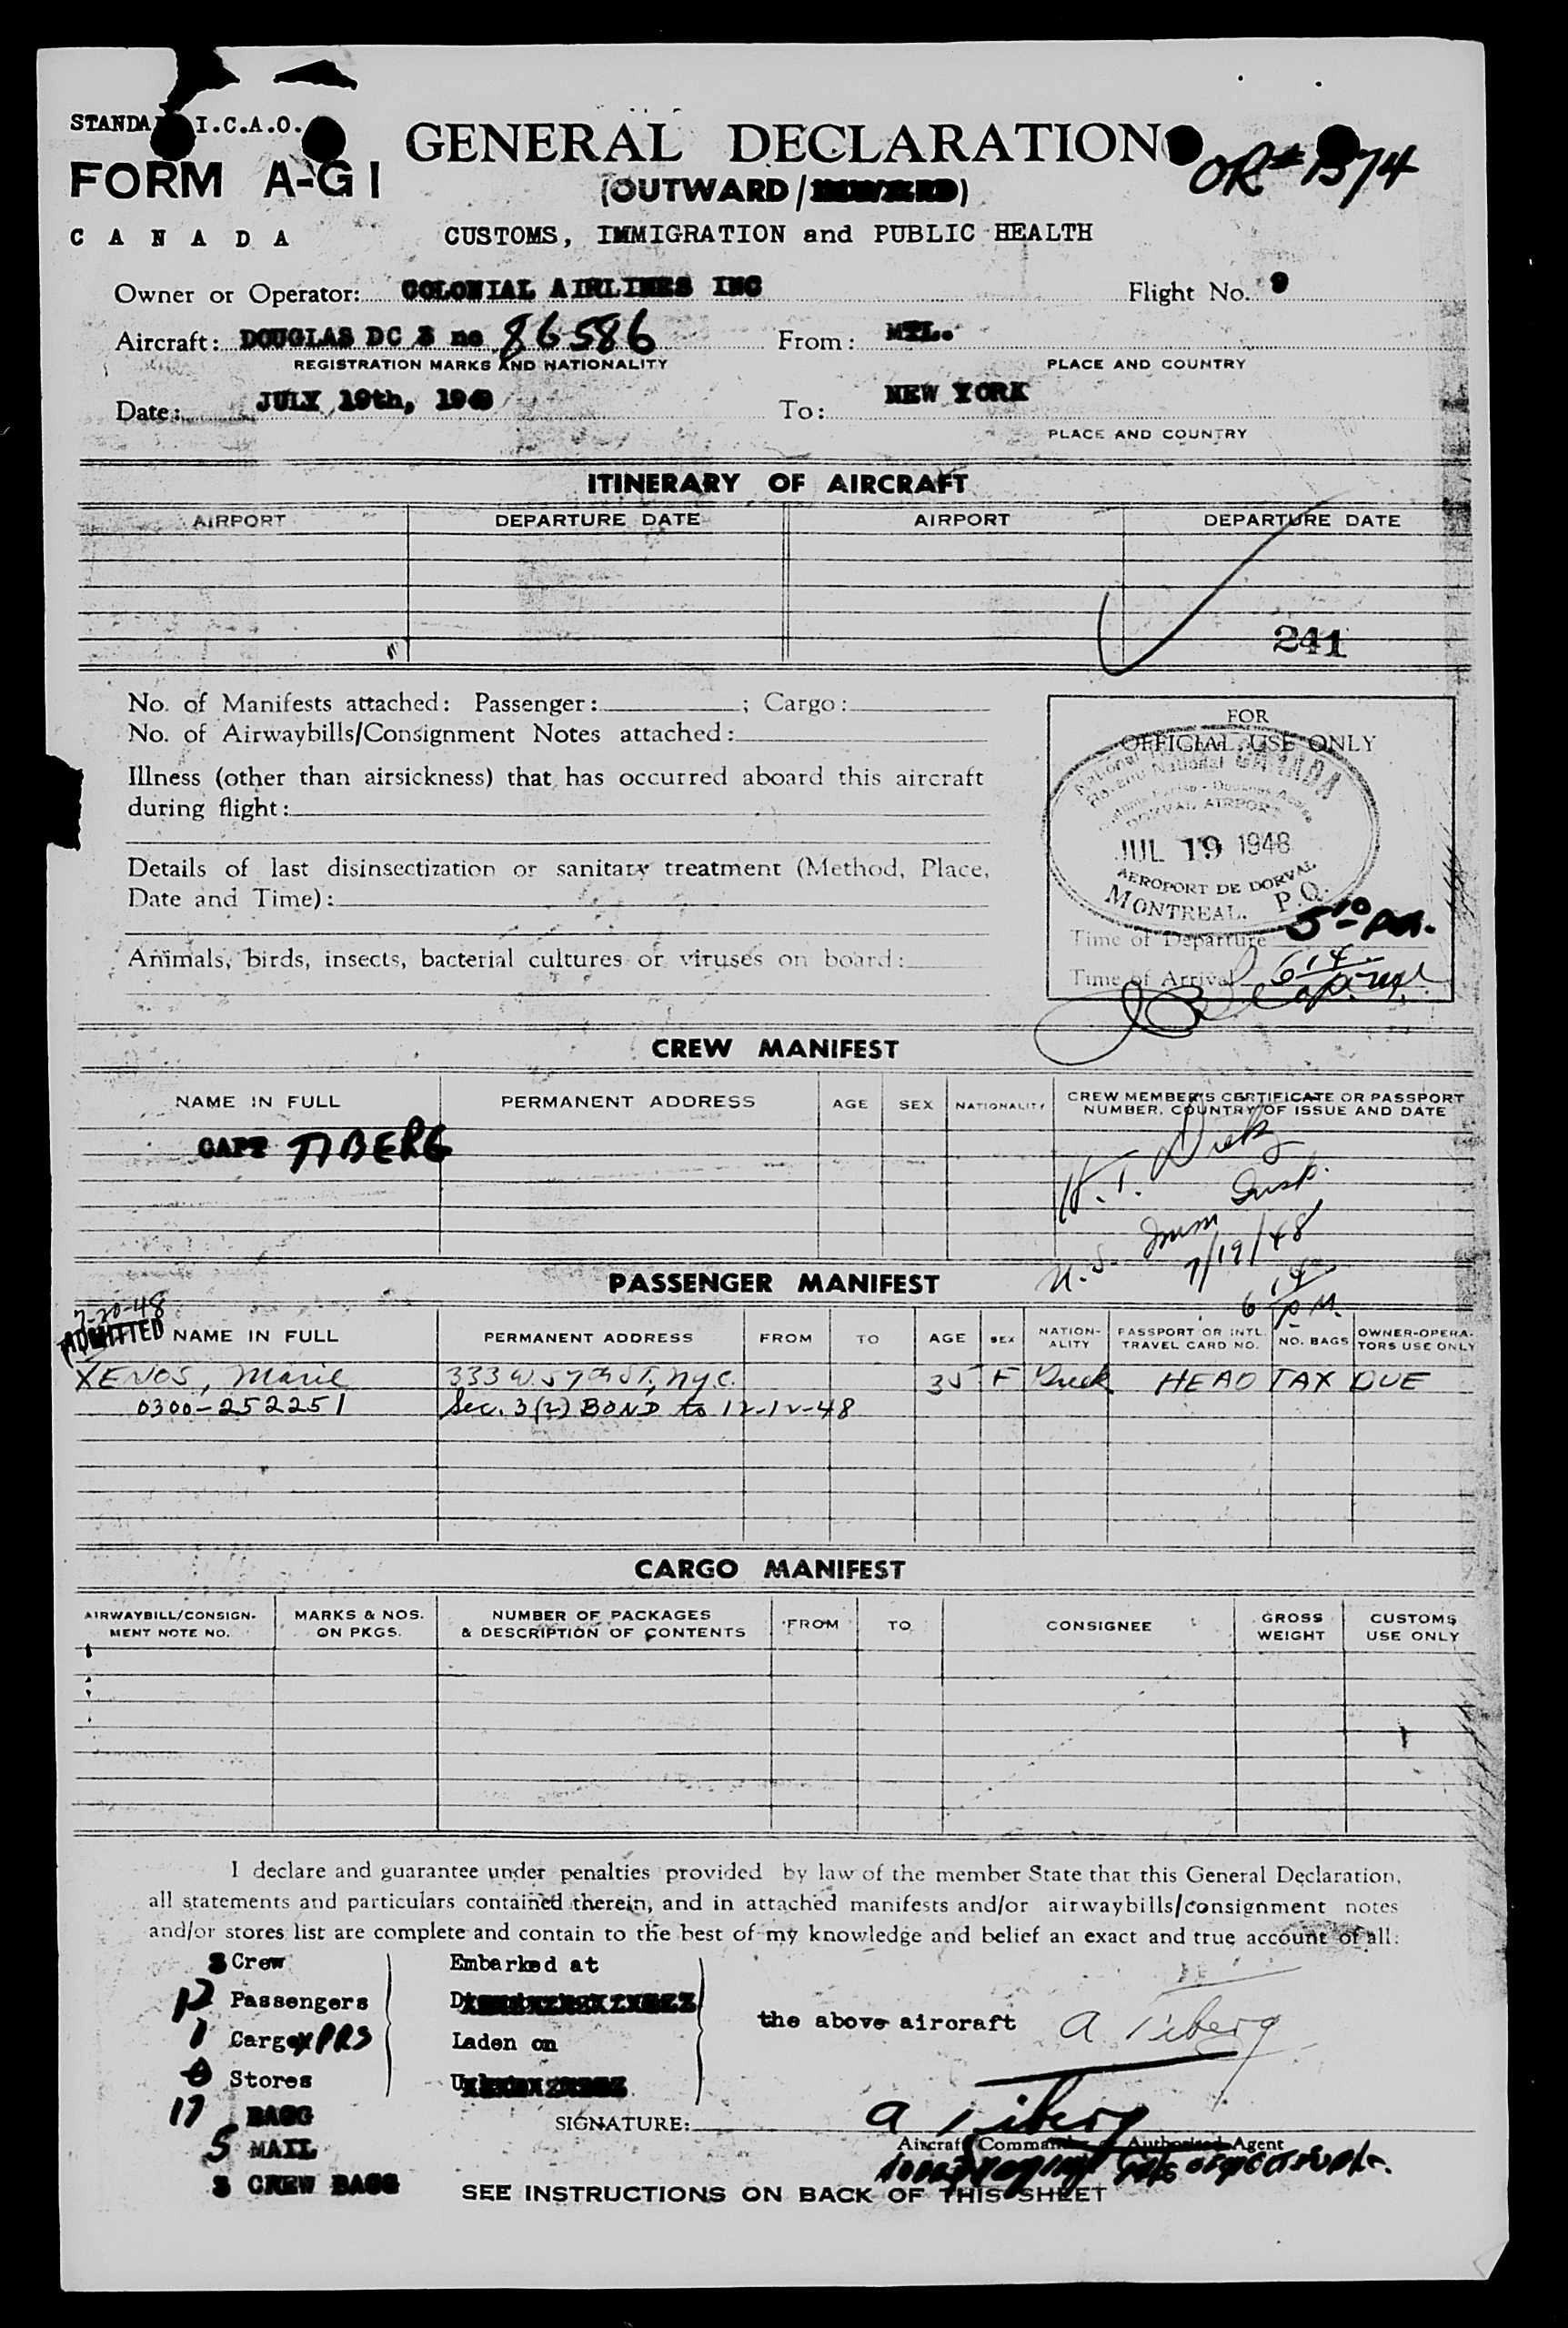 STANDA I.C.A.O.
FORM A-G1
CANADA
GENERAL DECLARATION
OR# 1374
(OUTWARD/
CUSTOMS, IMMIGRATION and PUBLIC HEALTH
Owner or Operator: COLONIAL AIRLINES INC Flight No. 9
Aircraft: DOUGLAS DC 3 no 86586 From: MTL.
REGISTRATION MARKS AND NATIONALITY PLACE AND COUNTRY
Date: JULY 19th, 194 To: NEW YORK
PLACE AND COUNTRY
ITINERARY OF AIRCRAFT
AIRPORT DEPARTURE DATE AIRPORT DEPARTURE DATE
241
No. of Manifests attached: Passenger: ; Cargo:
No. of Airwaybills/Consignment Notes attached:
Illness (other than airsickness) that has occurred aboard this aircraft
during flight:
Details of last disinsectization or sanitary treatment (Method, Place,
Date and Time):
Animals, birds, insects, bacterial cultures or viruses on board:
FOR
OFFICIAL USE ONLY
National CANADA
National
DORVAL AIRPORT
JUL 19 1948
AEROPORT DE DORVAL
MONTREAL. P.Q.
Time of Departure 5 10 P.M.
Time of Arrival 6 14
CREW MANIFEST
NAME IN FULL PERMANENT ADDRESS AGE SEX NATIONALITY CREW MEMBER'S CERTIFICATE OR PASSPORT
NUMBER, COUNTRY OF ISSUE AND DATE
CAPT TIBERG
H. T.
U.S. Imm Insp.
7/19/48
6 14 P.M.
PASSENGER MANIFEST
7-20-48
ADMITTED
NAME IN FULL PERMANENT ADDRESS FROM TO AGE SEX NATION-
ALITY PASSPORT OR INTL.
TRAVEL CARD NO. NO. BAGS OWNER-OPERA-
TORS USE ONLY
XENOS, Marie 333 W. 57th ST., N.Y.C. 35 F Greek HEAD TAX DUE
0300-252251 Sec. 3(2) BOND to 12-12-48
CARGO MANIFEST
AIRWAYBILL/CONSIGN-
MENT NOTE NO. MARKS & NOS.
ON PKGS. NUMBER OF PACKAGES
& DESCRIPTION OF CONTENTS FROM TO CONSIGNEE GROSS
WEIGHT CUSTOMS
USE ONLY
I declare and guarantee under penalties provided by law of the member State that this General Declaration,
all statements and particulars contained therein, and in attached manifests and/or airwaybills/consignment notes
and/or stores list are complete and contain to the best of my knowledge and belief an exact and true account of all:
3 Crew Embarked at
12 Passengers
the above aircraft A Tiberg
1 Cargo PRS Laden on
0 Stores
17 BAGG
SIGNATURE: A Tiberg
5 MAIL
Aircraft Commander Authorized Agent
3 CREW BAGG
SEE INSTRUCTIONS ON BACK OF THIS SHEET